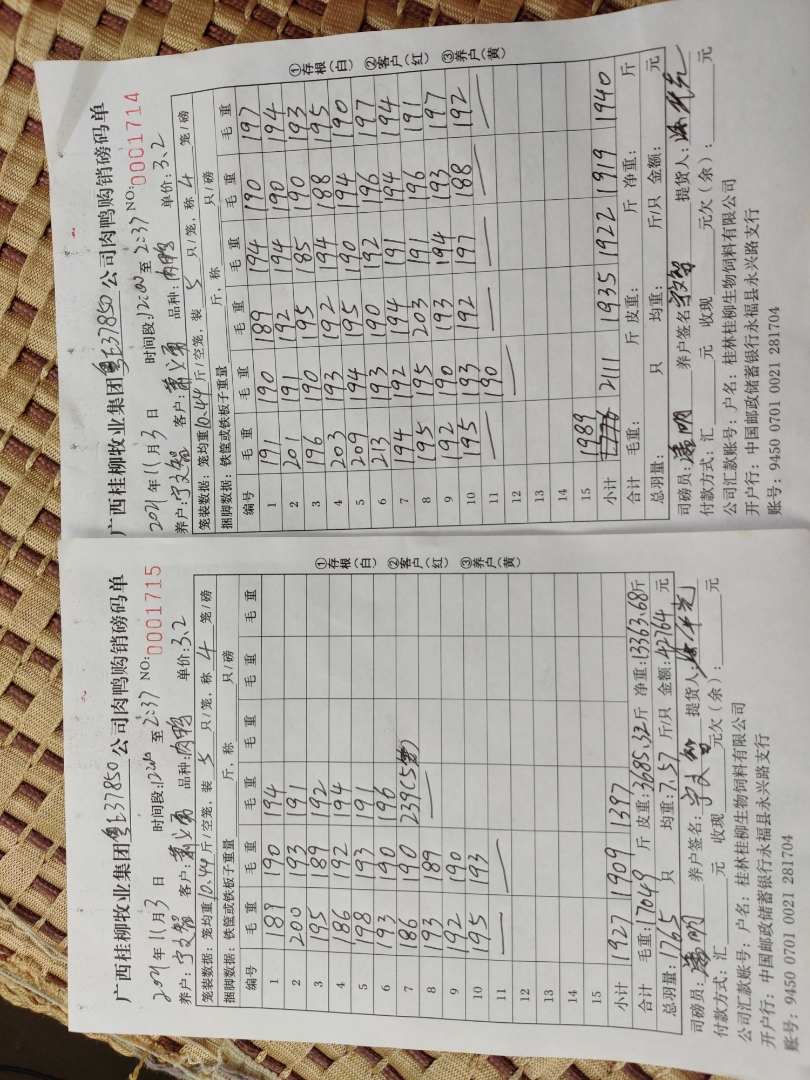 广西桂柳牧业集团粤L37850公司肉鸭购销磅码单
2021年11月3日 时间段:12:00至2:37 NO:0001715
养户:宁文智 客户: 品种:肉鸭 单价:3.2
笼装数据:笼均重10.44斤/空笼,装5只/笼,称4笼/磅
捆脚数据:铁筐或铁板子重量 斤,称 只/磅
编号 毛重 毛重 毛重 毛重 毛重 毛重
1 189 190 194
2 200 193 191
3 195 189 192
4 186 192 194
5 198 193 191
6 193 190 196
7 186 190 239(5笼)
8 193 189
9 192 190
10 195 193
11
12
13
14
15
小计 1927 1909 1397
合计 毛重:17049斤 皮重:3685.32斤 净重:13363.68斤
总羽量:1765只 均重:7.57斤/只 金额:42764元
司磅员:潘明 养户签名:宁文智 提货人:
付款方式:汇____元 收现____元欠(余):____元
公司汇款账号:户名:桂林桂柳生物饲料有限公司
开户行:中国邮政储蓄银行永福县永兴路支行
账号:9450 0701 0021 281704
①存根(白) ②客户(红) ③养户(黄)
广西桂柳牧业集团粤L37850公司肉鸭购销磅码单
2021年11月3日 时间段:12:00至2:37 NO:0001714
养户:宁文智 客户: 品种:肉鸭 单价:3.2
笼装数据:笼均重10.44斤/空笼,装5只/笼,称4笼/磅
捆脚数据:铁筐或铁板子重量 斤,称 只/磅
编号 毛重 毛重 毛重 毛重 毛重 毛重
1 191 190 189 194 190 197
2 201 191 192 194 190 194
3 196 190 195 185 190 193
4 203 193 192 194 188 195
5 209 194 195 190 194 190
6 213 193 190 192 196 197
7 194 192 194 191 194 194
8 195 195 203 191 196 191
9 192 190 193 194 193 197
10 195 193 192 197 188 192
11 190
12
13
14
15 1989
小计 2111 1935 1922 1919 1940
合计 毛重: 斤 皮重: 斤 净重: 斤
总羽量: 只 均重: 斤/只 金额: 元
司磅员:潘明 养户签名:宁文智 提货人:
付款方式:汇____元 收现____元欠(余):____元
公司汇款账号:户名:桂林桂柳生物饲料有限公司
开户行:中国邮政储蓄银行永福县永兴路支行
账号:9450 0701 0021 281704
①存根(白) ②客户(红) ③养户(黄)